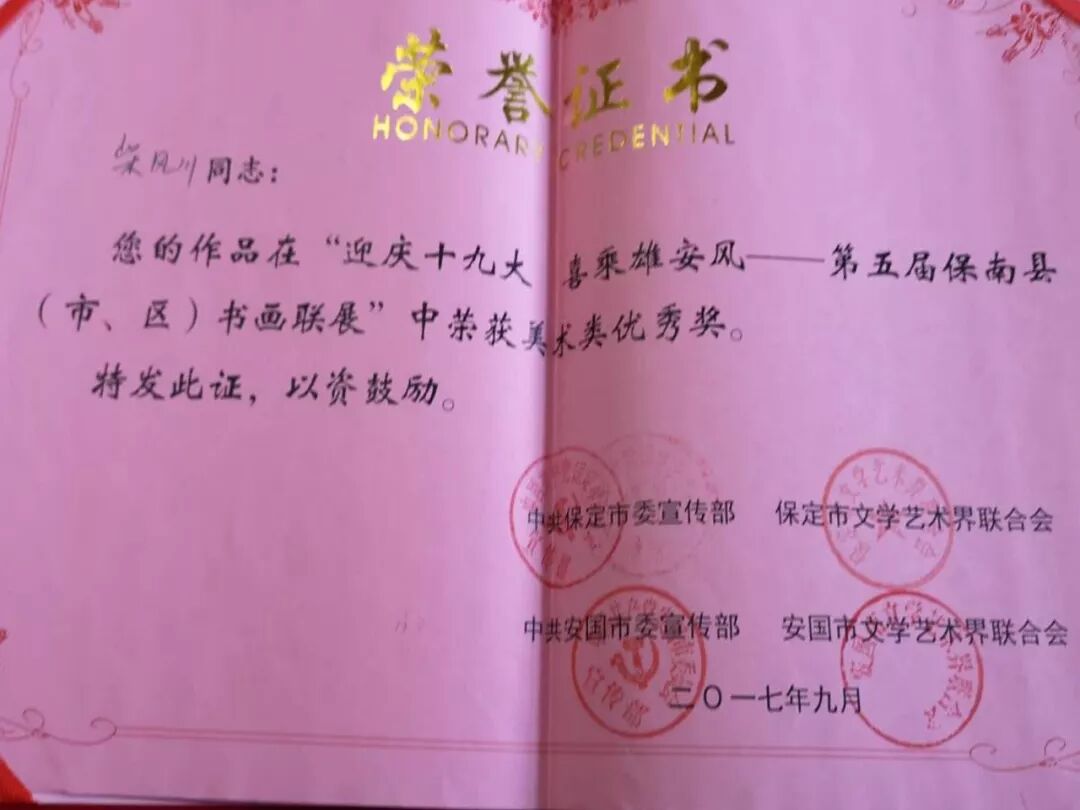 荣誉证书
HONORARY CREDENTIAL
柴凤川同志：
您的作品在“迎庆十九大 喜乘雄安风——第五届保南县
（市、区）书画联展”中荣获美术类优秀奖。
特发此证，以资鼓励。
中共保定市委宣传部 保定市文学艺术界联合会
中共安国市委宣传部 安国市文学艺术界联合会
二〇一七年九月